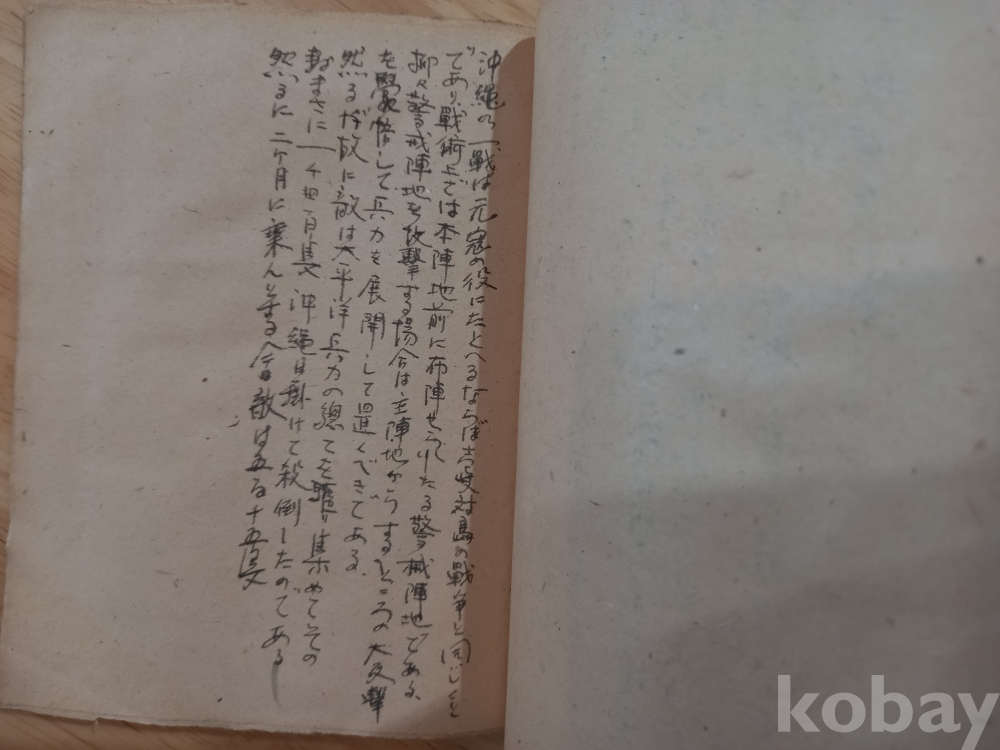 沖縄の一戦は元寇の役にたとへるならば壱岐対島の戦争と同じこと
であり、戦術上では本陣地前に布陣せられたる警戒陣地である、
抑々警戒陣地を攻撃する場合は主陣地からするところの大反撃
を覚悟して兵力を展開して置くべきである、
然るが故に敵は太平洋兵力の総てを駆り集めてその
数まさに一千四百隻 沖縄目掛けて殺倒したのである
然るに二ヶ月に 敵は五百十五隻
kobay